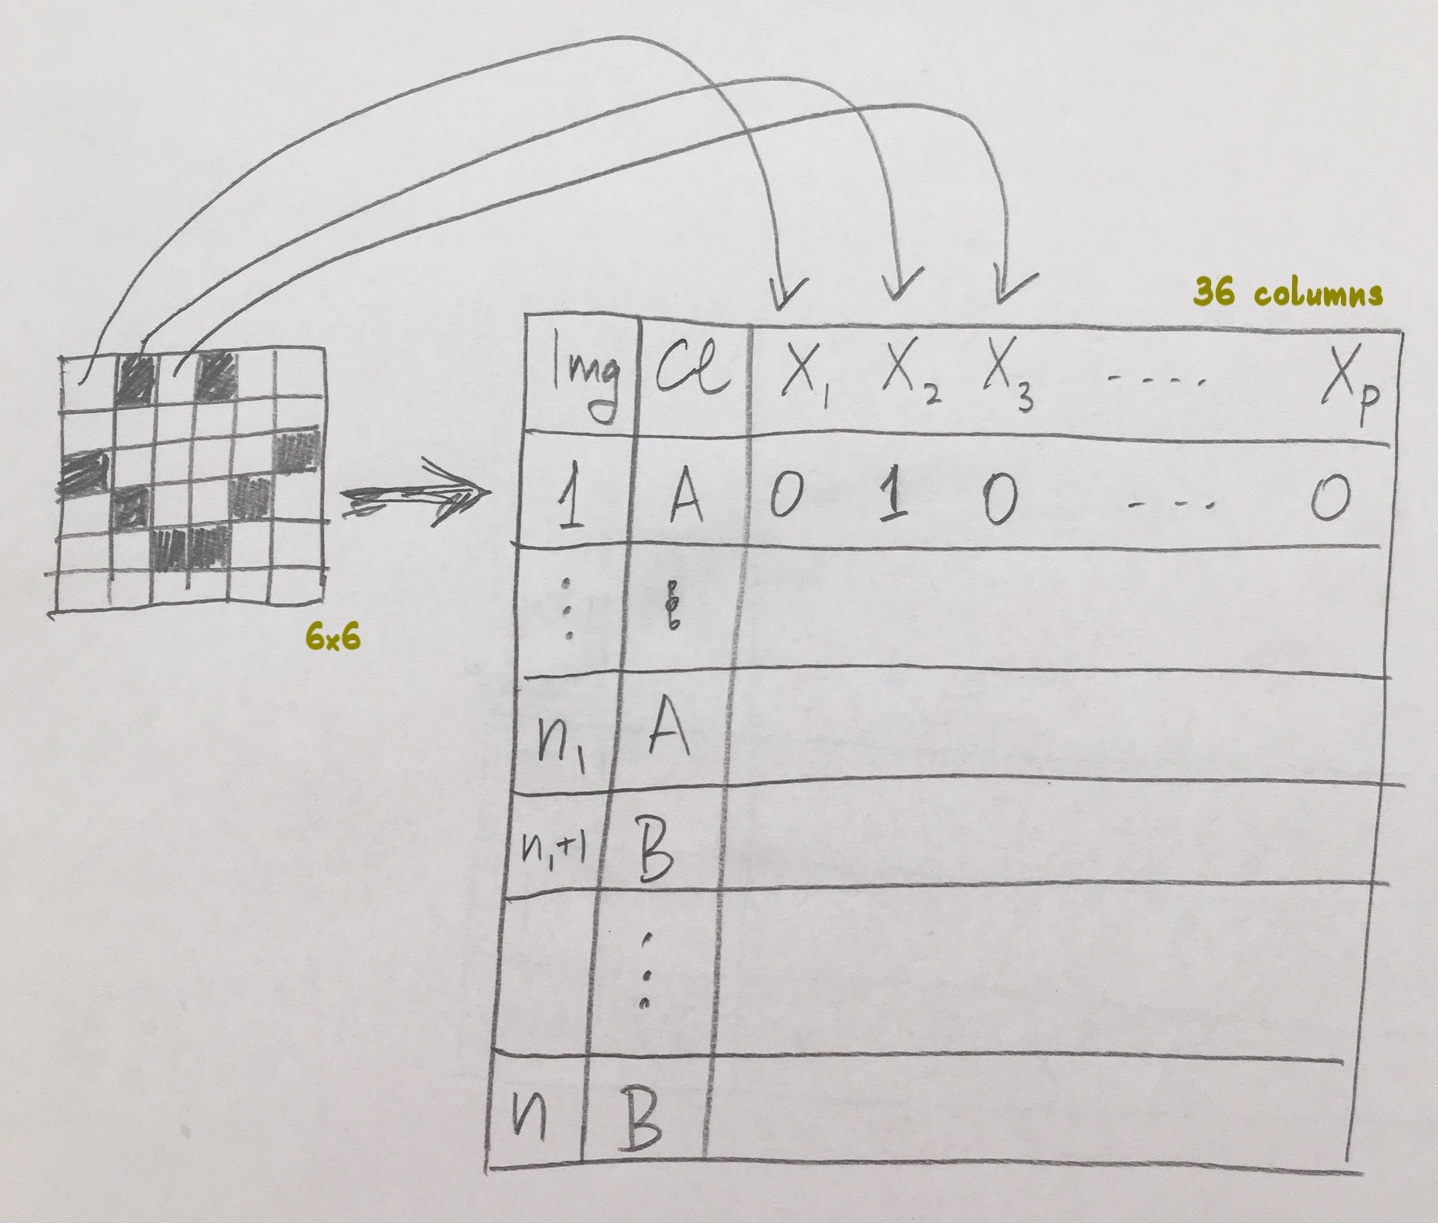 36 columns
Img Cl X₁ X₂ X₃ ---- Xₚ
1 A 0 1 0 --- 0
⋮ ⋮
n₁ A
n₁+1 B
⋮
n B
6x6